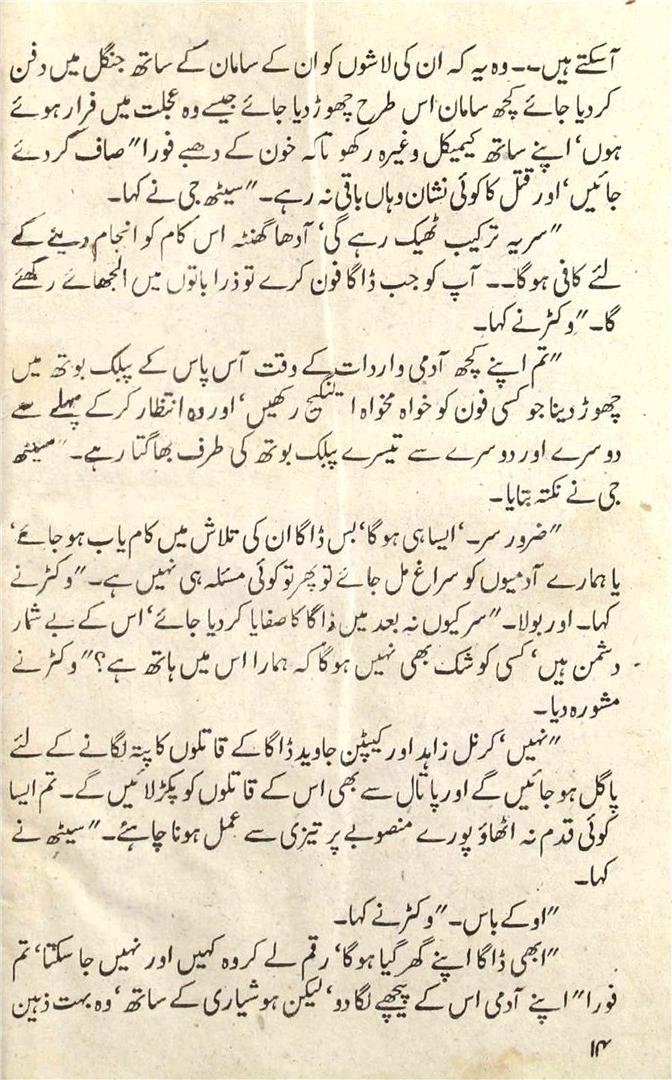 آسکتے ہیں۔۔ وہ یہ کہ ان کی لاشوں کو ان کے سامان کے ساتھ جنگل میں دفن
کر دیا جائے کچھ سامان اس طرح چھوڑ دیا جائے جیسے وہ عجلت میں فرار ہوئے
ہوں‘ اپنے ساتھ کیمیکل وغیرہ رکھو تاکہ خون کے دھبے فورا" صاف کر دئے
جائیں‘ اور قتل کا کوئی نشان وہاں باقی نہ رہے۔" سیٹھ جی نے کہا۔
"سر یہ ترکیب ٹھیک رہے گی‘ آدھا گھنٹہ اس کام کو انجام دینے کے
لئے کافی ہوگا۔۔ آپ کو جب ڈاگا فون کرے تو ذرا باتوں میں الجھائے رکھئے
گا۔" وکٹر نے کہا۔
"تم اپنے کچھ آدمی واردات کے وقت آس پاس کے پبلک بوتھ میں
چھوڑ دینا جو کسی فون کو خواہ مخواہ انگیج رکھیں‘ اور وہ انتظار کر کے پہلے سے
دوسرے اور دوسرے سے تیسرے پبلک بوتھ کی طرف بھاگتا رہے۔" سیٹھ
جی نے نکتہ بتایا۔
"ضرور سر۔‘ ایسا ہی ہوگا‘ بس ڈاگا ان کی تلاش میں کام یاب ہو جائے‘
یا ہمارے آدمیوں کو سراغ مل جائے تو پھر تو کوئی مسئلہ ہی نہیں ہے۔" وکٹر نے
کہا۔ اور بولا۔ "سر کیوں نہ بعد میں ڈاگا کا صفایا کر دیا جائے‘ اس کے بے شمار
دشمن ہیں‘ کسی کو شک بھی نہیں ہوگا کہ ہمارا اس میں ہاتھ ہے؟" وکٹر نے
مشورہ دیا۔
"نہیں‘ کرنل زاہد اور کیپٹن جاوید ڈاگا کے قاتلوں کا پتہ لگانے کے لئے
پاگل ہو جائیں گے اور پاتال سے بھی اس کے قاتلوں کو پکڑ لائیں گے۔ تم ایسا
کوئی قدم نہ اٹھاؤ پورے منصوبے پر تیزی سے عمل ہونا چاہئے۔" سیٹھ نے
کہا۔
"اوکے باس۔" وکٹر نے کہا۔
"ابھی ڈاگا اپنے گھر گیا ہوگا‘ رقم لے کر وہ کہیں اور نہیں جا سکتا‘ تم
فورا" اپنے آدمی اس کے پیچھے لگا دو‘ لیکن ہوشیاری کے ساتھ‘ وہ بہت ذہین
۱۴